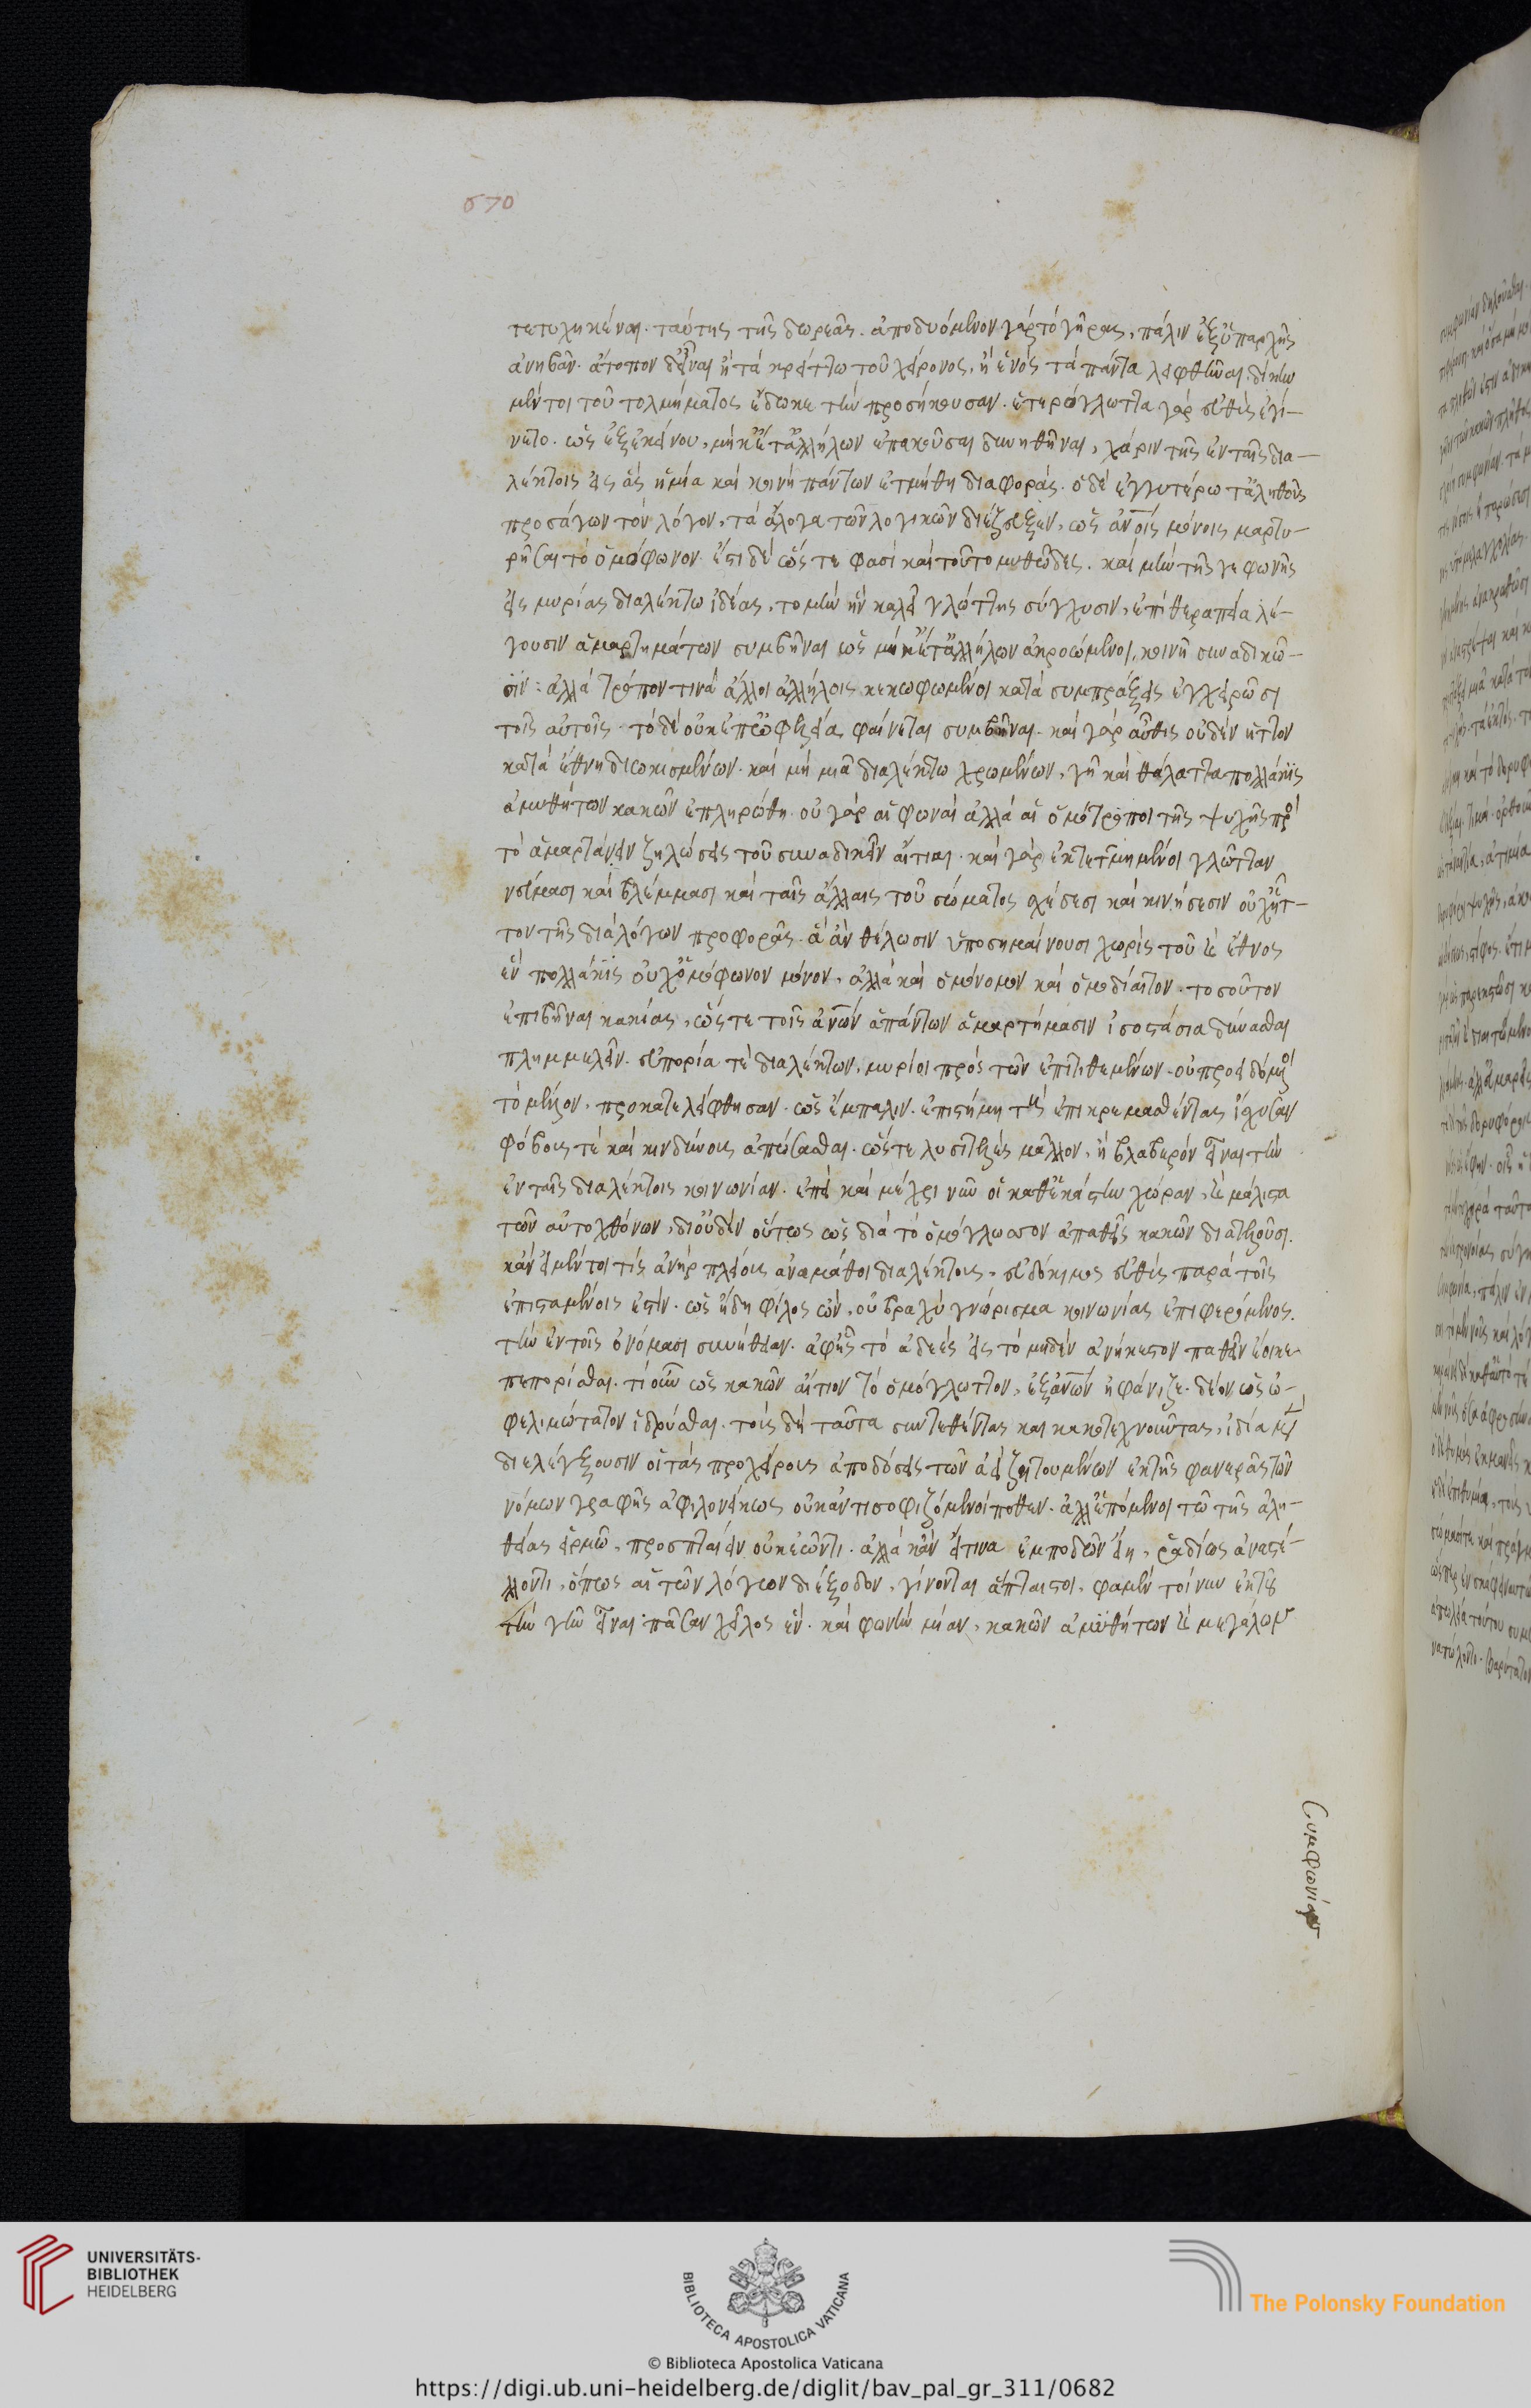 670
τετυχηκέναι. ταύτης τῆς δωρεᾶς. ἀποδυόμενον γὰρ τὸ γῆρας, πάλιν ἐξυπαρχῆς
ἀνηβᾶν. ἄτοπον δ' εἶναι ἢ τὰ κρείττω τοῦ χείρονος, ἢ ἑνὸς τὰ πάντα λειφθῆναι. δίκην
μέντοι τοῦ τολμήματος ἔδωκε τὴν προσήκουσαν. ἑτερόγλωττα γὰρ εὐθὺς ἐγί-
νετο. ὡς ἐξ ἐκείνου, μηκέτ' ἀλλήλων ἐπακοῦσαι δυνηθῆναι, χάριν τῆς ἐν ταῖς δια-
λέκτοις εἰς ἃς ἡ μία καὶ κοινὴ πάντων ἐτμήθη διαφορᾶς. ὁ δὲ ἐγγυτέρω τἀληθοῦς
προσάγων τὸν λόγον, τὰ ἄλογα τῶν λογικῶν διέζευξεν, ὡς ἀνοις μόνοις μαρτυ-
ρῆσαι τὸ ὁμόφωνον. ἔστι δὲ ὥς τε φασὶ καὶ τοῦτο μυθῶδες. καὶ μὴν τῆς γε φωνῆς
εἰς μυρίας διαλέκτων ἰδέας, τομὴν ἣν καλεῖ γλώττης σύγχυσιν, ἐπὶ θεραπεία λέ-
γουσιν ἁμαρτημάτων συμβῆναι ὡς μηκέτ' ἀλλήλων ἀκροώμενοι, κοινῇ συναδικῶ-
σιν: ἀλλὰ τρόπον τινὰ ἄλλοι ἀλλήλοις κεκωφωμένοι κατὰ συμπράξεις ἐγχειρῶσι
τοῖς αὐτοῖς. τὸ δὲ οὐκ ἐπ' ὠφελεία, φαίνεται συμβῆναι. καὶ γὰρ αὖθις οὐδὲν ἧττον
κατὰ ἔθνη διωκισμένων. καὶ μὴ μιᾶ διαλέκτω χρωμένων, γῆ καὶ θάλαττα πολλάκις
ἀμυθήτων κακῶν ἐπληρώθη. οὐ γὰρ αἱ φωναὶ ἀλλὰ αἱ ὁμότροποι τῆς ψυχῆς πρὸς
τὸ ἁμαρτάνειν ζηλώσεις τοῦ συναδικεῖν αἴτιαι. καὶ γὰρ ἐκτετμημένοι γλῶτταν
νεύμασι καὶ βλέμμασι καὶ ταῖς ἄλλαις τοῦ σώματος σχέσεσι καὶ κινήσεσιν οὐχ ἧτ-
τον τῆς διὰ λόγων προφορᾶς. ἃ ἂν θέλωσιν ὑποσημαίνουσι χωρὶς τοῦ καὶ ἔθνος
ἓν πολλάκις οὐχ ὁμόφωνον μόνον, ἀλλὰ καὶ ὁμόνομον καὶ ὁμοδίαιτον. τοσοῦτον
ἐπιβῆναι κακίας, ὥς τε τοῖς ἀνων ἁπάντων ἁμαρτήμασιν ἰσοστάσια δύνασθαι
πλημμελεῖν. ἀπορία τὲ διαλέκτων, μυρίοι πρὸς τῶν ἐπιτιθεμένων. οὐ προειδόμενοι
τὸ μέλλον, προκατελείφθησαν. ὡς ἔμπαλιν. ἐπιστήμη τοὺς ἐπικρεμασθέντας ἴσχυσαν
φόβους τὲ καὶ κινδύνους ἀπώσασθαι. ὥς τε λυσιτελὲς μᾶλλον, ἢ βλαβερὸν εἶναι τὴν
ἐν ταῖς διαλέκτοις κοινωνίαν. ἐπεὶ καὶ μέχρι νῦν οἱ καθ' ἑκάστην χώραν, καὶ μάλιστα
τῶν αὐτοχθόνων, δι' οὐδὲν οὕτως ὡς διὰ τὸ ὁμόγλωσσον ἀπαθεῖς κακῶν διατελοῦσι.
κἂν εἰ μέντοι τὶς ἀνὴρ πλείους ἀναμάθοι διαλέκτους, εὐδόκιμος εὐθὺς παρὰ τοῖς
ἐπισταμένοις ἐστίν. ὡς ἤδη φίλος ὢν, οὐ βραχὺ γνώρισμα κοινωνίας ἐπιφερόμενος.
τὴν ἐν τοῖς ὀνόμασι συνήθειαν. ἀφ' ἧς τὸ ἀδεὲς εἰς τὸ μηδὲν ἀνήκεστον παθεῖν ἔοικε
πεπορίσθαι. τί οὖν ὡς κακῶν αἴτιον τὸ ὁμόγλωττον, ἐξ ἀνων ἠφάνιζε. δέον ὡς ὠ-
φελιμώτατον ἱδρύσθαι. τοὺς δὴ ταῦτα συντεθέντας καὶ κακοτεχνοῦντας, ἰδία μὲν
διελέγξουσιν οἱ τὰς προχείρους ἀποδόσεις τῶν ἀεὶ ζητουμένων ἐκ τῆς φανερᾶς τῶν
νόμων γραφῆς ἀφιλονείκως οὐκ ἀντισοφιζόμενοί ποθεν. ἀλλ' ἑπόμενοι τῶ τῆς ἀλη-
θείας εἱρμῶ, προσπταίειν οὐκ ἐῶντι. ἀλλὰ κἂν εἴ τινα ἐμποδὼν εἴη, ῥᾳδίως ἀναστέ-
λλοντι, ὅπως αἱ τῶν λόγων διέξοδον, γίνονται ἄπταιστοι. φαμὲν τοίνυν ἐκ τοῦ
τὴν γῆν εἶναι πᾶσαν χεῖλος ἓν. καὶ φωνὴν μίαν, κακῶν ἀμυθήτων καὶ μεγάλων
συμφωνίαν
UNIVERSITÄTS-
BIBLIOTHEK
HEIDELBERG
BIBLIOTECA APOSTOLICA VATICANA
© Biblioteca Apostolica Vaticana
The Polonsky Foundation
https://digi.ub.uni-heidelberg.de/diglit/bav_pal_gr_311/0682